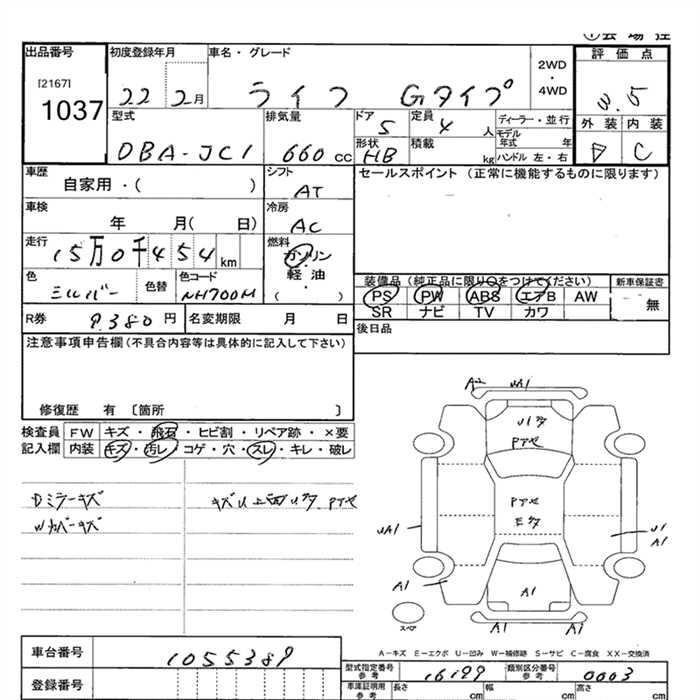 出品番号 初度登録年月 車名・グレード 評価点
[2167]
1037
22 2月 ライフ Gタイプ
2WD
・
4WD
型式 排気量 ドア 定員 ディーラー・並行 外装 内装
DBA-JC1 660cc 5 4人 モデル年式 年
形状 積載 C
HB kg ハンドル 左・右
車歴 シフト セールスポイント (正常に機能するものに限ります)
自家用・( ) AT
車検 冷房
年 月( 日) AC
走行 燃料
15万0千454km ガソリン
軽油
( )
色 色替 色コード
シルバー NH700M
装備品(純正品に限り○をつけてください) 新車保証書
PS PW ABS エアB AW 無
SR ナビ TV カワ
R券 9,380円 名変期限 月 日
後日品
注意事項申告欄(不具合内容等は具体的に記入して下さい)
修復歴 有 [箇所 ]
検査員 FW キズ・飛石・ヒビ割・リペア跡・×要
記入欄 内装 キズ・汚レ・コゲ・穴・スレ・キレ・破レ
Dミラーキズ
Wカバーキズ
A2 UA1
Pアセ
Pアセ
UA1
U1
A1
A1
A1
スペア
A-キズ E-エクボ U-凹み W-補修跡 S-サビ C-腐食 XX-交換済
車台番号 1055389
型式指定番号 参考 16199 類別区分番号 参考 0003
登録番号
車庫証明用 参考 長さ cm 幅 cm 高さ cm